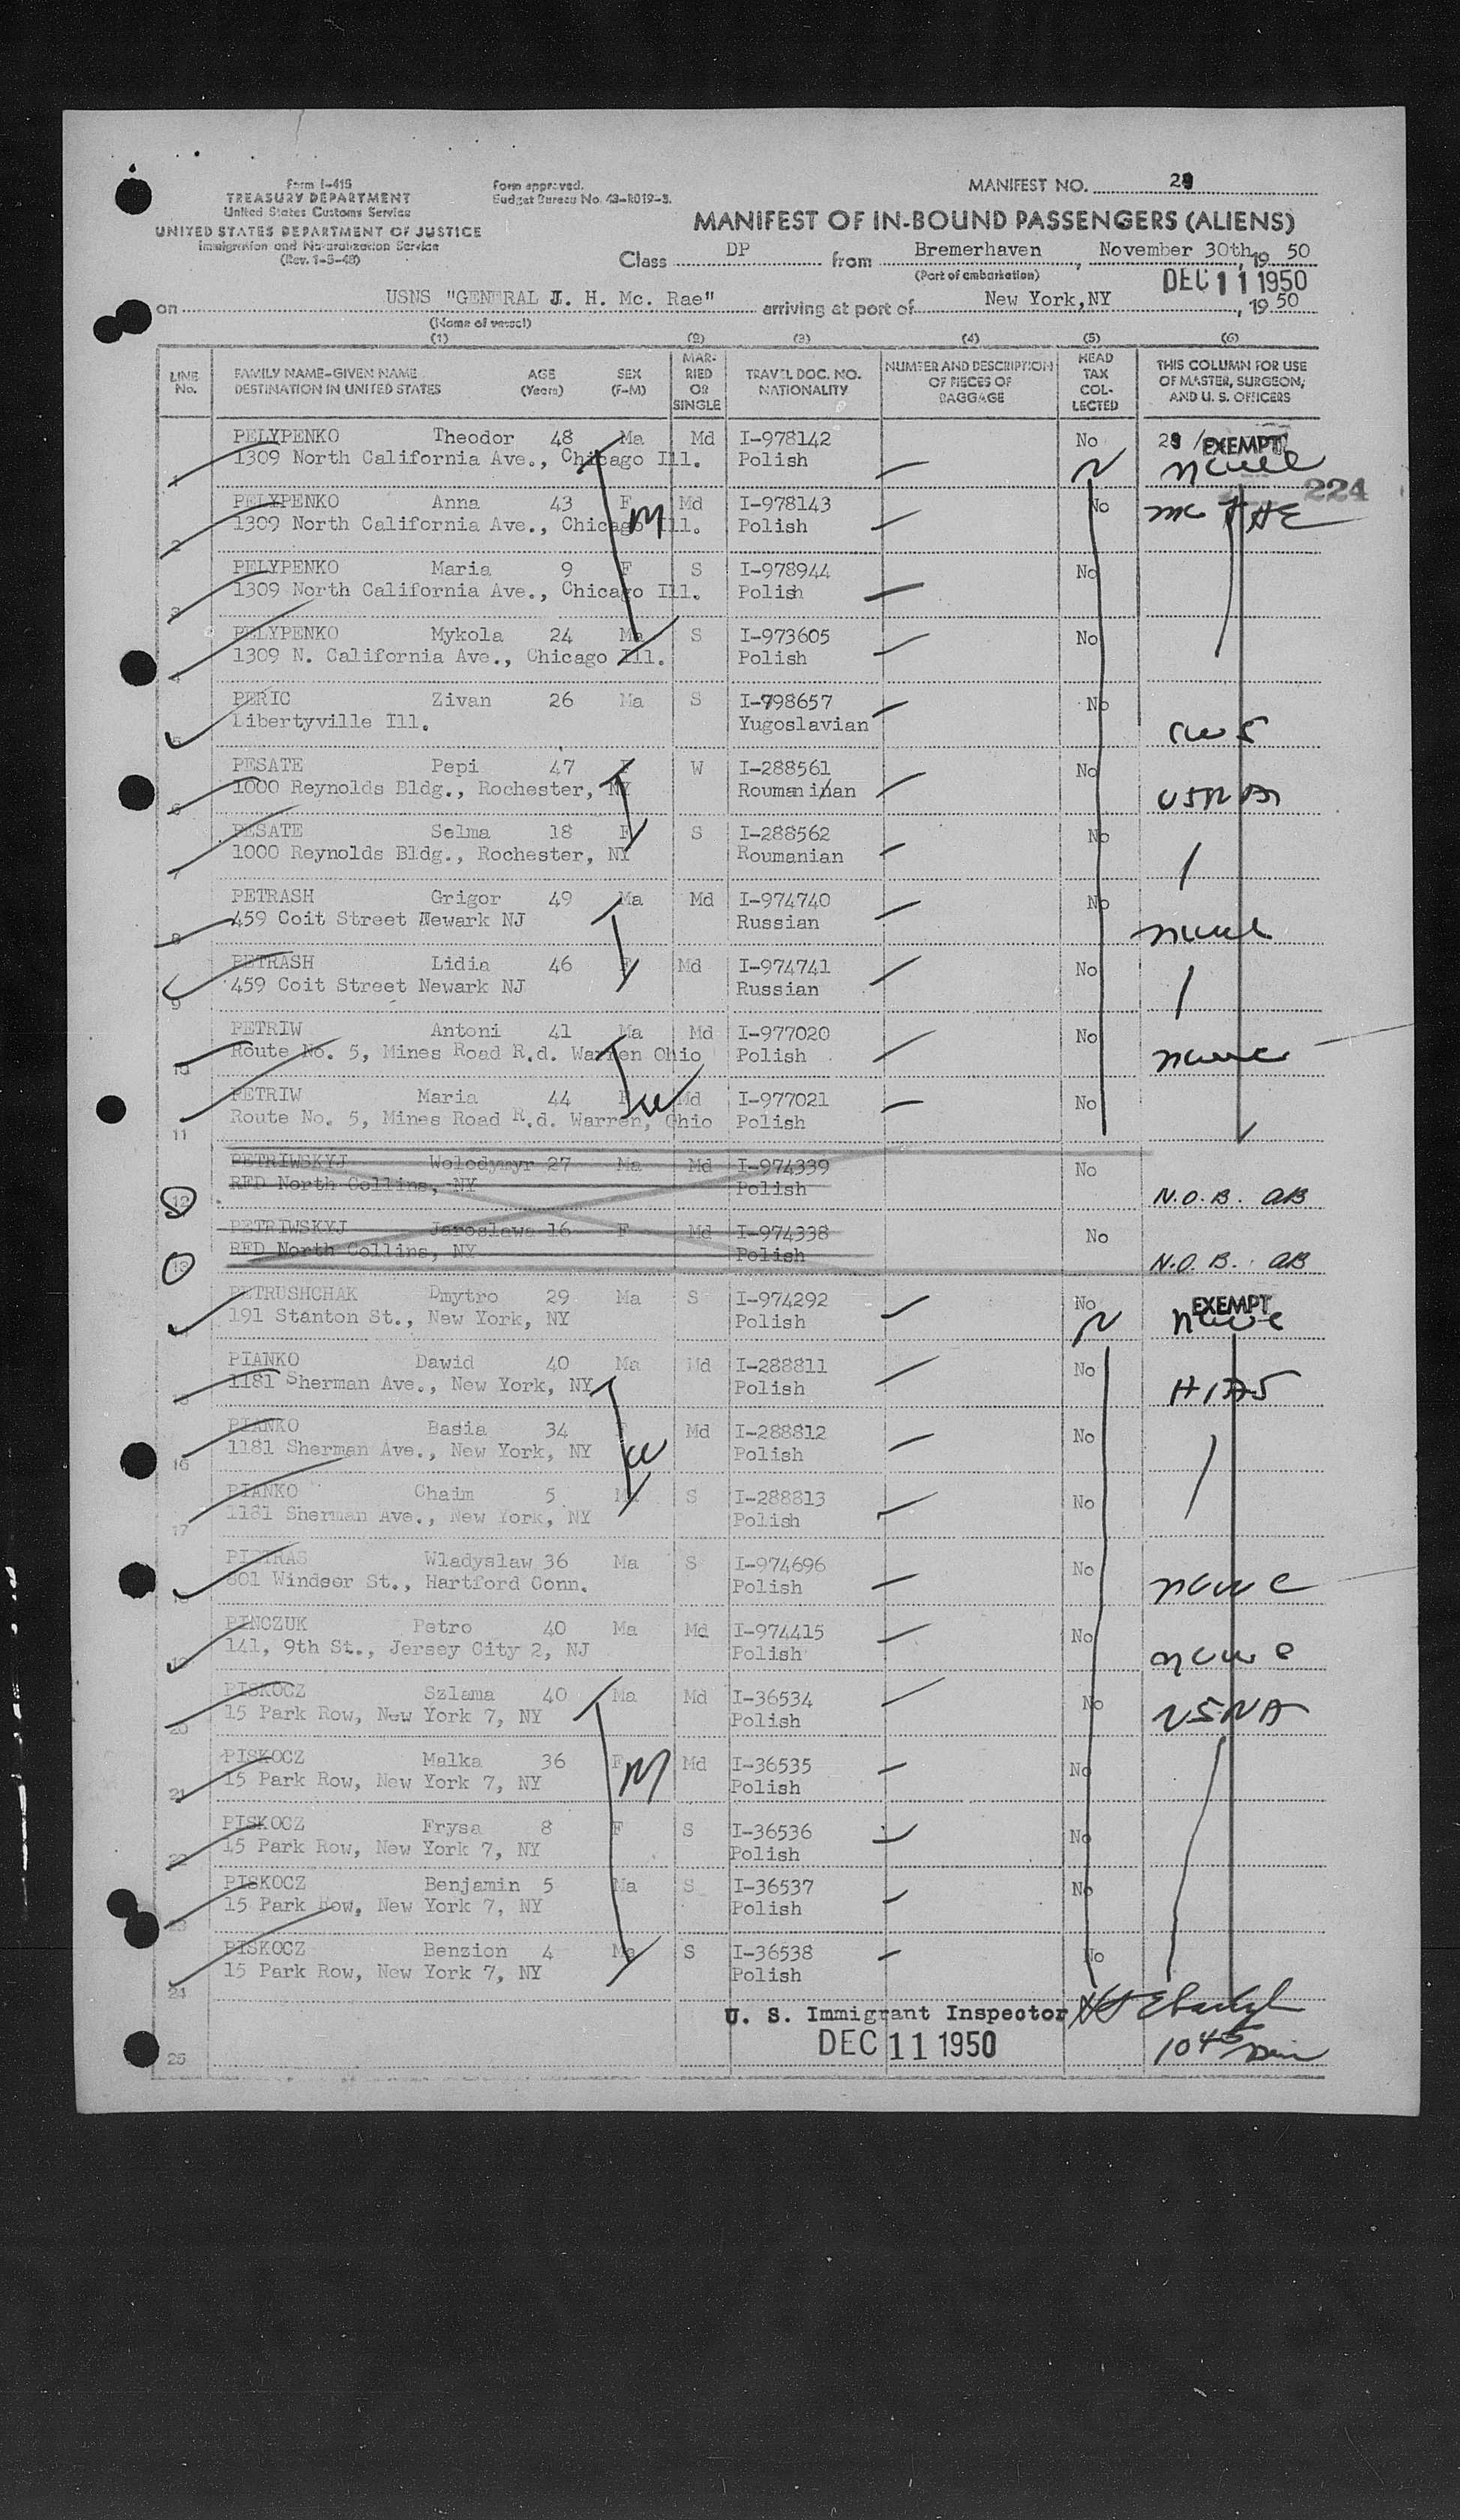 Form I-415
TREASURY DEPARTMENT
United States Customs Service
UNITED STATES DEPARTMENT OF JUSTICE
Immigration and Naturalization Service
(Rev. 1-5-48)
Form approved.
Budget Bureau No. 43-R019-3.
MANIFEST NO. 29
MANIFEST OF IN-BOUND PASSENGERS (ALIENS)
Class DP from Bremerhaven, November 30th, 19 50
(Port of embarkation)
DEC 11 1950
on USNS "GENERAL J. H. Mc. Rae" arriving at port of New York,NY, 19 50
(Name of vessel)
(1) (2) (3) (4) (5) (6)
LINE No. FAMILY NAME-GIVEN NAME DESTINATION IN UNITED STATES AGE (Years) SEX (F-M) MARRIED OR SINGLE TRAVEL DOC. NO. NATIONALITY NUMBER AND DESCRIPTION OF PIECES OF BAGGAGE HEAD TAX COLLECTED THIS COLUMN FOR USE OF MASTER, SURGEON, AND U. S. OFFICERS
PELYPENKO Theodor 48 Ma Md I-978142 No 29 / EXEMPT
1 1309 North California Ave., Chicago Ill. Polish
224
PELYPENKO Anna 43 F Md I-978143 No
2 1309 North California Ave., Chicago Ill. Polish
PELYPENKO Maria 9 F S I-978944 No
3 1309 North California Ave., Chicago Ill. Polish
PELYPENKO Mykola 24 Ma S I-973605 No
4 1309 N. California Ave., Chicago Ill. Polish
PERIC Zivan 26 Ma S I-798657 No
5 Libertyville Ill. Yugoslavian
PESATE Pepi 47 F W I-288561 No
6 1000 Reynolds Bldg., Rochester, NY Roumanian
PESATE Selma 18 F S I-288562 No
7 1000 Reynolds Bldg., Rochester, NY Roumanian
PETRASH Grigor 49 Ma Md I-974740 No
8 459 Coit Street Newark NJ Russian
PETRASH Lidia 46 F Md I-974741 No
9 459 Coit Street Newark NJ Russian
PETRIW Antoni 41 Ma Md I-977020 No
10 Route No. 5, Mines Road R.d. Warren Ohio Polish
PETRIW Maria 44 F Md I-977021 No
Route No. 5, Mines Road R.d. Warren, Ohio Polish
11
PETRIWSKYJ Wolodymyr 27 Ma Md I-974339 No
RFD North Collins, NY Polish
12 N.O.B. AB
PETRIWSKYJ Jaroslawa 16 F Md I-974338 No
RFD North Collins, NY Polish
13 N.O.B. AB
PETRUSHCHAK Dmytro 29 Ma S I-974292 No EXEMPT
191 Stanton St., New York, NY Polish
PIANKO Dawid 40 Ma Md I-288811 No
1181 Sherman Ave., New York, NY Polish HIAS
PIANKO Basia 34 F Md I-288812 No
16 1181 Sherman Ave., New York, NY Polish
PIANKO Chaim 5 Ma S I-288813 No
17 1181 Sherman Ave., New York, NY Polish
PIETRAS Wladyslaw 36 Ma S I-974696 No
801 Windsor St., Hartford Conn. Polish
PINCZUK Petro 40 Ma Md I-974415 No
19 141, 9th St., Jersey City 2, NJ Polish
PISKOCZ Szlama 40 Ma Md I-36534 No
20 15 Park Row, New York 7, NY Polish USNA
PISKOCZ Malka 36 F Md I-36535 No
21 15 Park Row, New York 7, NY Polish
PISKOCZ Frysa 8 F S I-36536 No
22 15 Park Row, New York 7, NY Polish
PISKOCZ Benjamin 5 Ma S I-36537 No
23 15 Park Row, New York 7, NY Polish
PISKOCZ Benzion 4 Ma S I-36538 No
15 Park Row, New York 7, NY Polish
24
U. S. Immigrant Inspector
DEC 11 1950
25